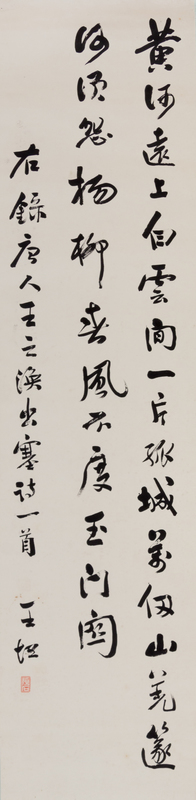 黄河遠上白雲間一片孤城萬仞山羌篴
何須怨楊柳春風不度玉门関
右錄唐人王之渙出塞詩一首
王